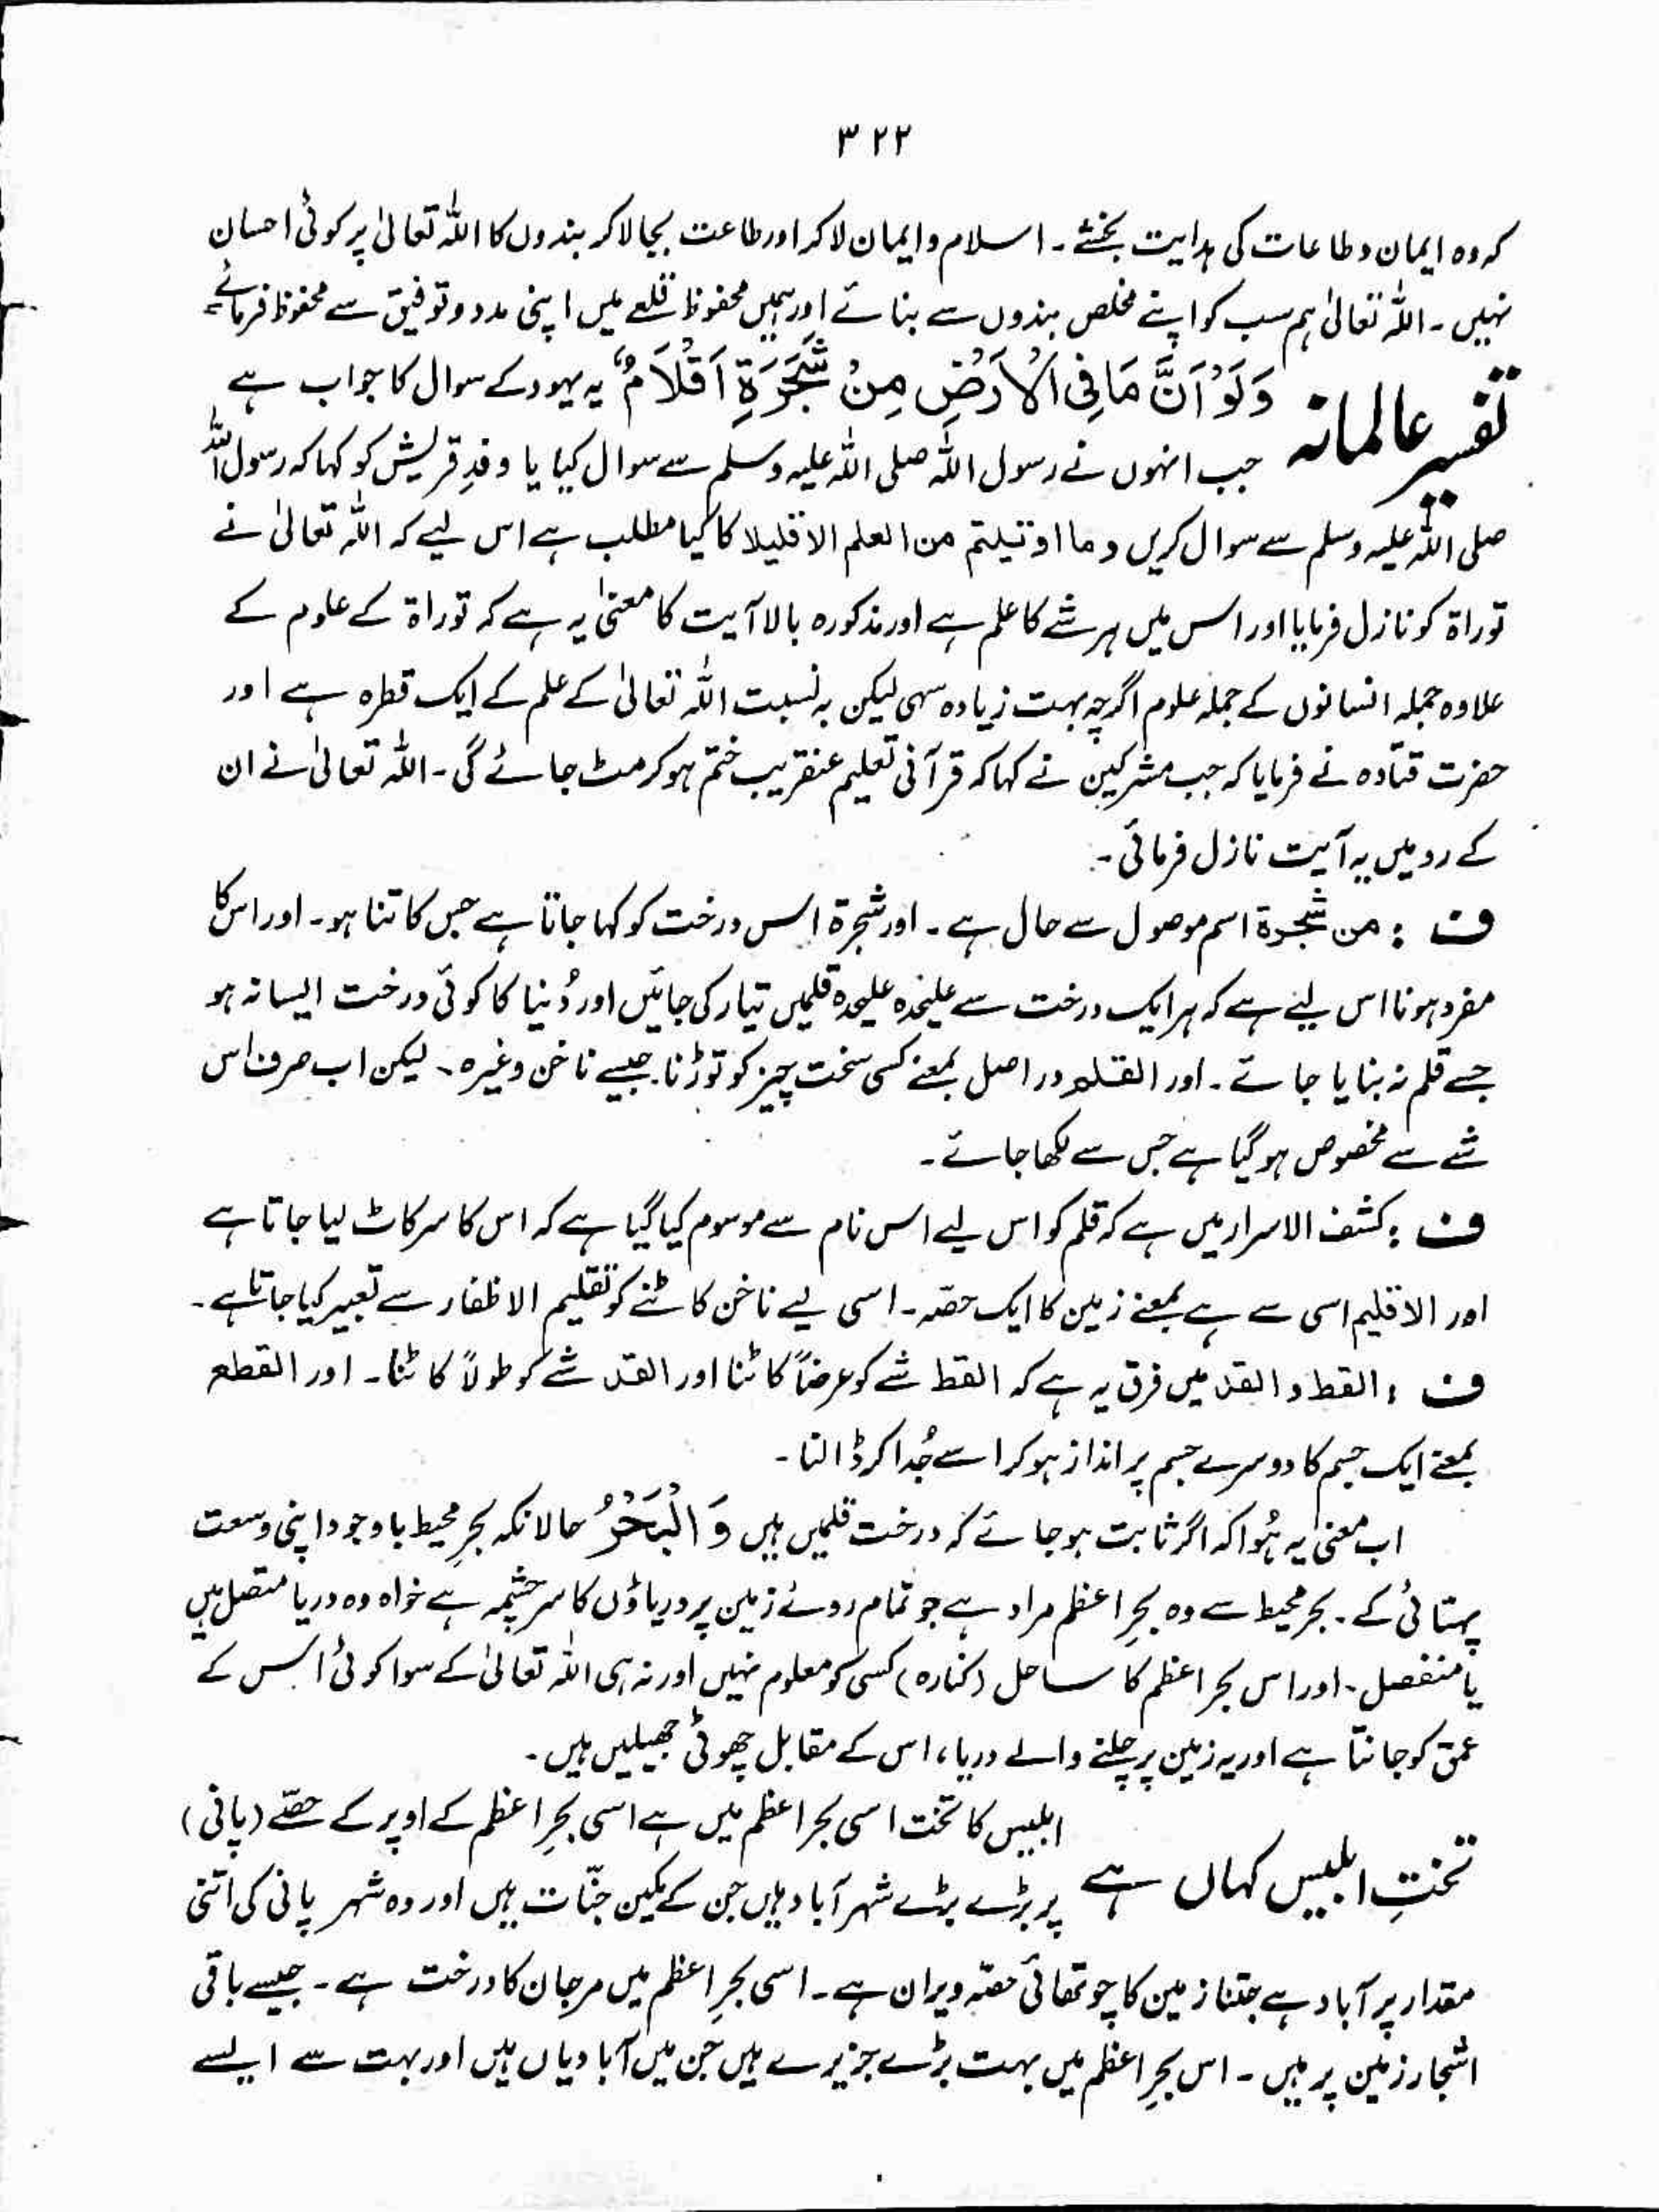 ۳۲۲
کہ وہ ایمان و طاعات کی ہدایت بخشے۔ اسلام و ایمان لا کر اور طاعت بجا لا کر بندوں کا اللہ تعالیٰ پر کوئی احسان
نہیں۔ اللہ تعالیٰ ہم سب کو اپنے مخلص بندوں سے بنائے اور ہمیں محفوظ قلعے میں اپنی مدد و توفیق سے محفوظ فرمائے۔
تفسیر عالمانہ
وَلَوْ اَنَّ مَا فِی الْاَرْضِ مِنْ شَجَرَۃٍ اَقْلَامٌ یہ یہود کے سوال کا جواب ہے
جب انہوں نے رسول اللہ صلی اللہ علیہ وسلم سے سوال کیا یا وفدِ قریش کو کہا کہ رسول اللہ
صلی اللہ علیہ وسلم سے سوال کریں و ما اوتیتم من العلم الا قلیلا کا کیا مطلب ہے اس لیے کہ اللہ تعالیٰ نے
توراۃ کو نازل فرمایا اور اس میں ہر شے کا علم ہے اور مذکورہ بالا آیت کا معنیٰ یہ ہے کہ توراۃ کے علوم کے
علاوہ جملہ انسانوں کے جملہ علوم اگرچہ بہت زیادہ سہی لیکن بہ نسبت اللہ تعالیٰ کے علم کے ایک قطرہ ہے اور
حضرت قتادہ نے فرمایا کہ جب مشرکین نے کہا کہ قرآنی تعلیم عنقریب ختم ہو کر مٹ جائے گی۔ اللہ تعالیٰ نے ان
کے رد میں یہ آیت نازل فرمائی۔
ف : من شجرۃ اسم موصول سے حال ہے۔ اور شجرۃ اس درخت کو کہا جاتا ہے جس کا تنا ہو۔ اور اس کا
مفرد ہونا اس لیے ہے کہ ہر ایک درخت سے علیحدہ علیحدہ قلمیں تیار کی جائیں اور دُنیا کا کوئی درخت ایسا نہ ہو
جسے قلم نہ بنایا جائے۔ اور القلم دراصل بمعنے کسی سخت چیز کو توڑنا۔ جیسے ناخن وغیرہ۔ لیکن اب صرف اس
شے سے مخصوص ہو گیا ہے جس سے لکھا جائے۔
ف : کشف الاسرار میں ہے کہ قلم کو اس لیے اس نام سے موسوم کیا گیا ہے کہ اس کا سر کاٹ لیا جاتا ہے
اور الاقلیم اسی سے ہے بمعنے زمین کا ایک حصّہ۔ اسی لیے ناخن کاٹنے کو تقلیم الاظفار سے تعبیر کیا جاتا ہے۔
ف : القط و القد میں فرق یہ ہے کہ القط شے کو عرضاً کاٹنا اور القد شے کو طولاً کاٹنا۔ اور القطع
بمعنے ایک جسم کا دوسرے جسم پر انداز ہو کر اسے جُدا کر ڈالنا۔
اب معنیٰ یہ ہُوا کہ اگر ثابت ہو جائے کہ درخت قلمیں ہیں وَ الْبَحْرُ حالانکہ بحرِ محیط باوجود اپنی وسعت
پہنائی کے۔ بحر محیط سے وہ بحرِ اعظم مراد ہے جو تمام روئے زمین پر دریاؤں کا سرچشمہ ہے خواہ وہ دریا متصل ہیں
یا منفصل۔ اور اس بحر اعظم کا ساحل (کنارہ) کسی کو معلوم نہیں اور نہ ہی اللہ تعالیٰ کے سوا کوئی اس کے
عمق کو جانتا ہے اور یہ زمین پر چلنے والے دریا، اس کے مقابل چھوٹی جھیلیں ہیں۔
تختِ ابلیس کہاں ہے
ابلیس کا تخت اسی بحر اعظم میں ہے اسی بحرِ اعظم کے اوپر کے حصّے (پانی)
پر بڑے بڑے شہر آباد ہیں جن کے مکین جنّات ہیں اور وہ شہر پانی کی اتنی
مقدار پر آباد ہے جتنا زمین کا چوتھائی حصّہ ویران ہے۔ اسی بحرِ اعظم میں مرجان کا درخت ہے۔ جیسے باقی
اشجار زمین پر ہیں۔ اس بحرِ اعظم میں بہت بڑے جزیرے ہیں جن میں آبادیاں ہیں اور بہت سے ایسے